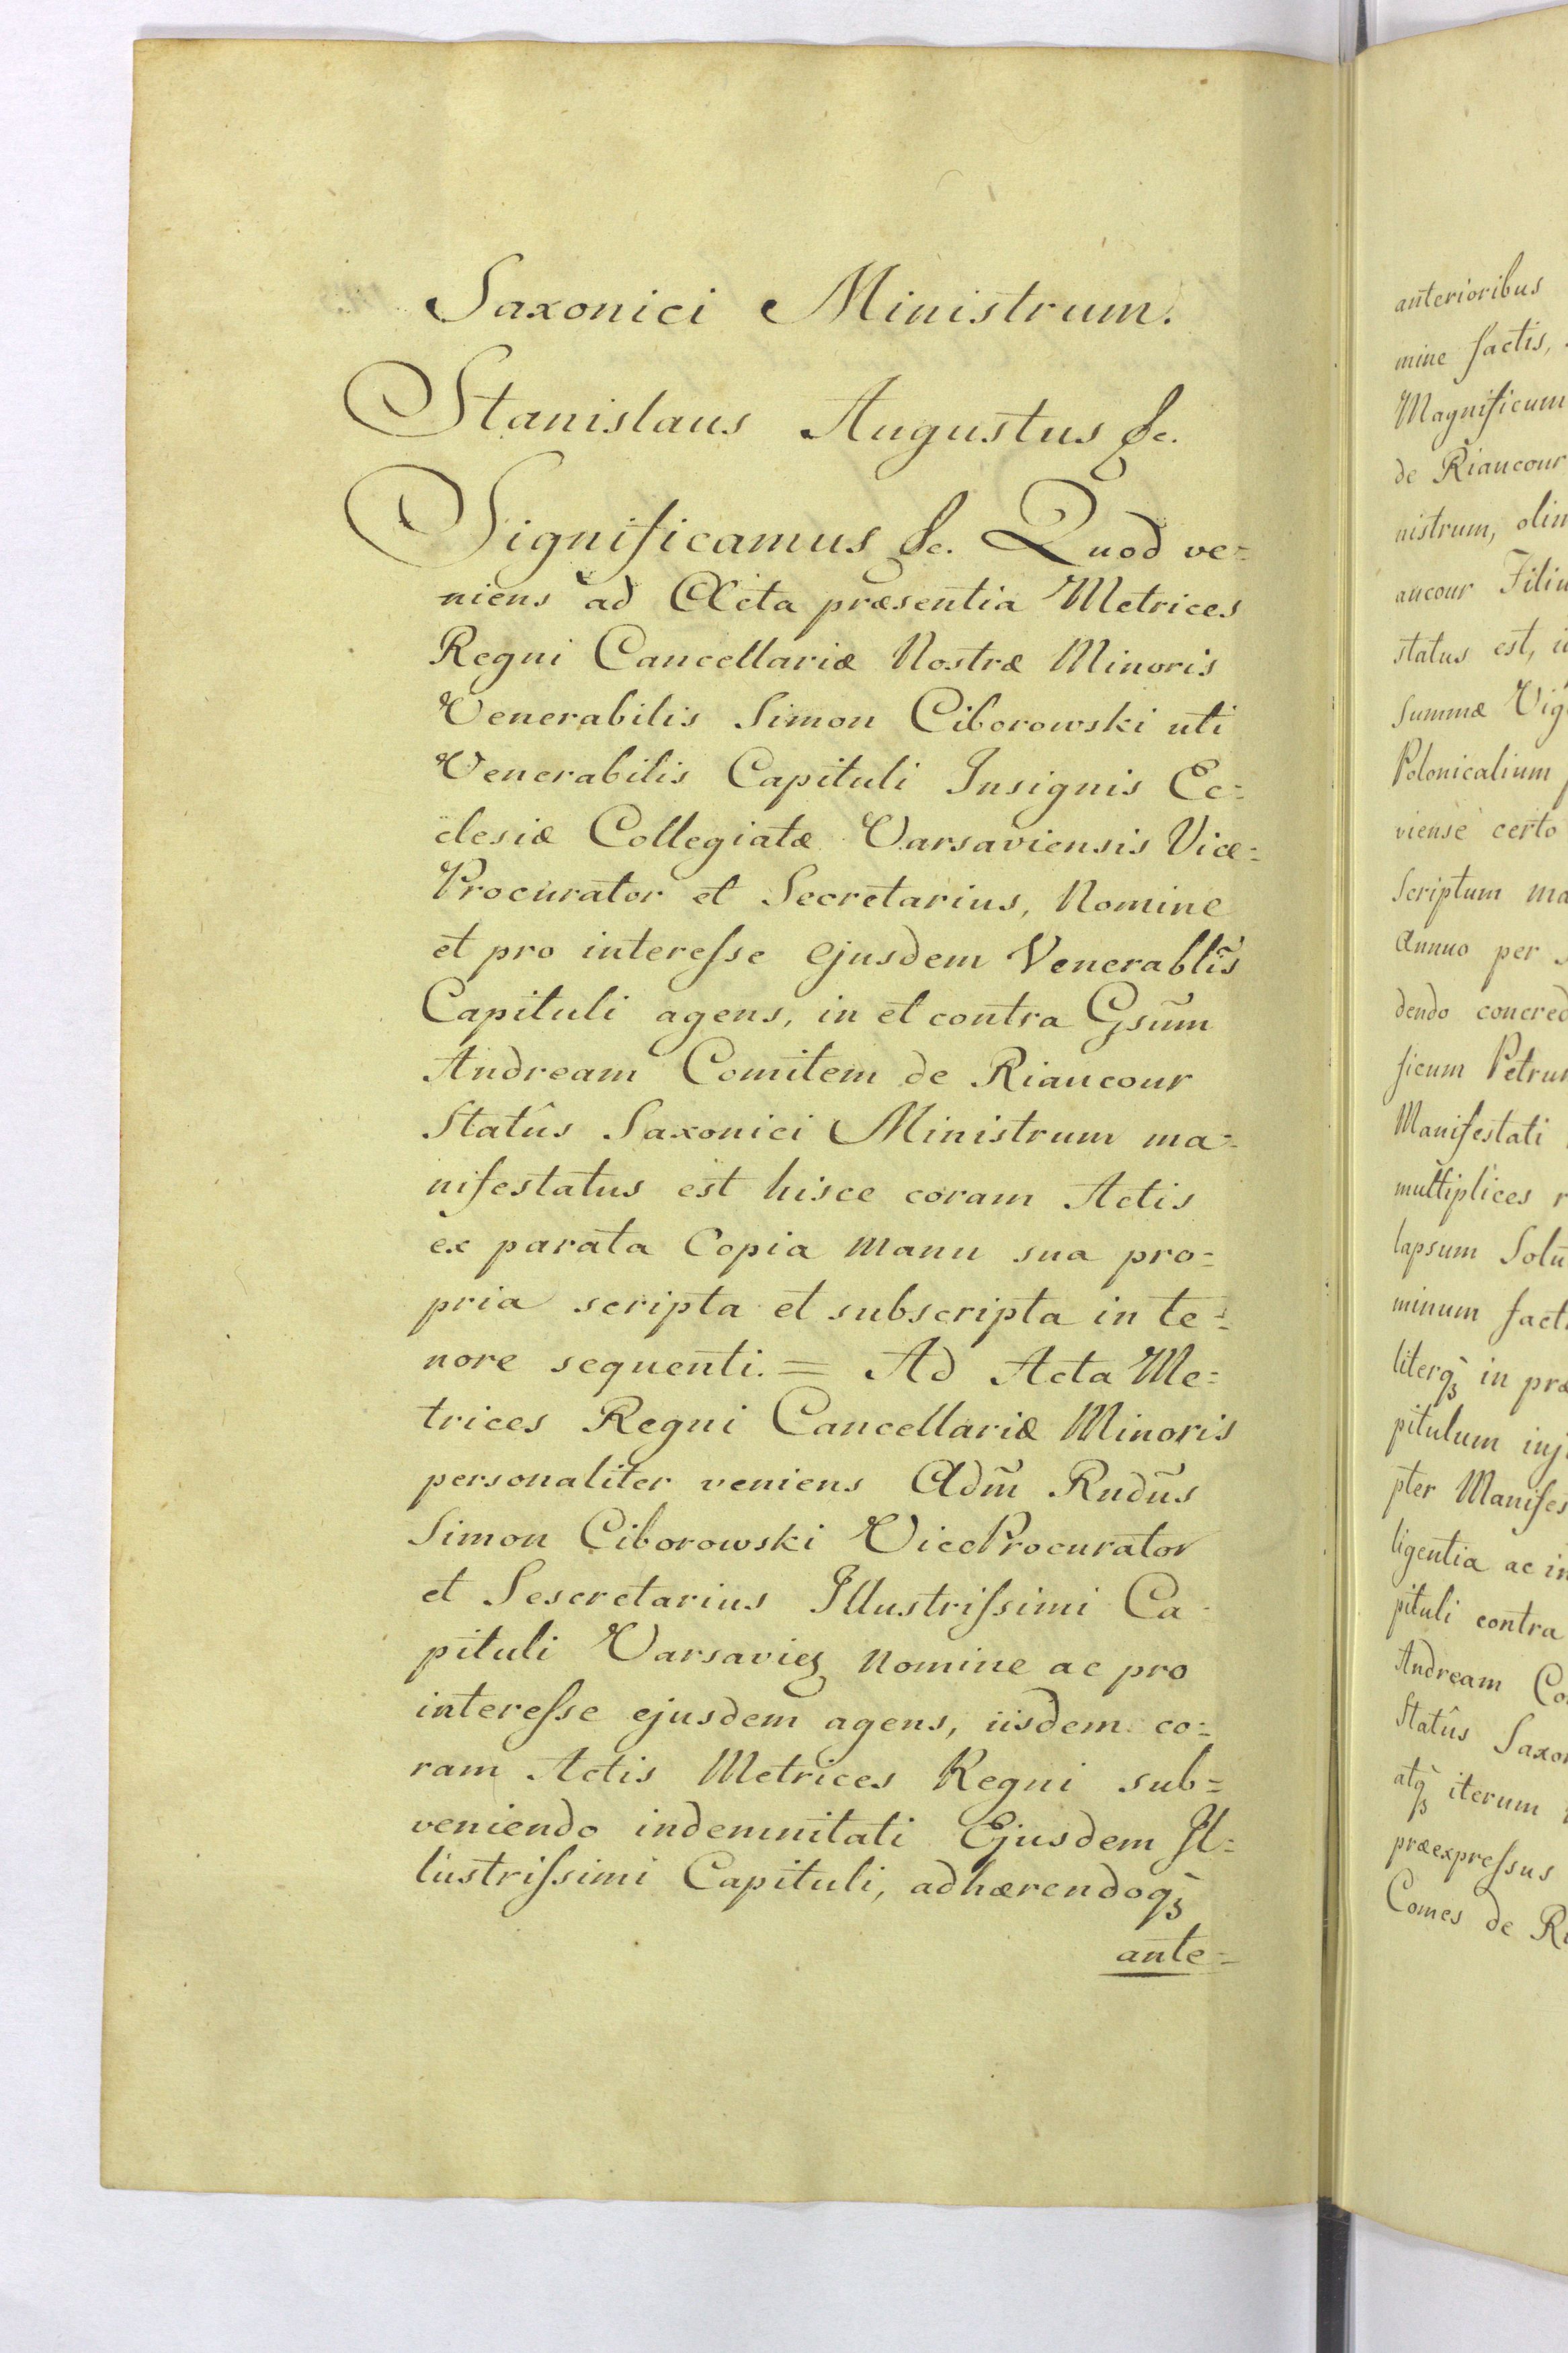 Saxonici Ministrum.
Stanislaus Augustus &c.
Significamus &c. Quod ve=
niens ad Acta præsentia Metrices
Regni Cancellariæ Nostræ Minoris
Venerabilis Simon Ciborowski uti
Venerabilis Capituli Insignis Ec=
clesiæ Collegiatæ Varsaviensis Vice=
Procurator et Secretarius, Nomine
et pro interesse ejusdem Venerablis̃
Capituli agens, in et contra Gsum̃
Andream Comitem de Riaucour
Statûs Saxonici Ministrum ma=
nifestatus est hisce coram Actis
ex parata Copia manu sua pro=
pria scripta et subscripta in te=
nore sequenti. = Ad Acta Me=
trices Regni Cancellariæ Minoris
personaliter veniens Adm̃ Rndus̃
Simon Ciborowski ViceProcurator
et Sescretarius Illustrissimi Ca=
pituli Varsavieꝫ Nomine ac pro
interesse ejusdem agens, iisdem co=
ram Actis Metrices Regni sub=
veniendo indemnitati Ejusdem Il=
lustrissimi Capituli, adhærendoqꝫ
ante=
anterioribus
mine factis,
Magnificum
de Riaucour
nistrum, olim
aucour Filiu
status est, i
Summæ Vig
Polonicalium
viense certo
Scriptum ma
Annuo per
dendo concred
ficum Petrum
Manifestati
multiplices r
lapsum Solu
minum fact
literqꝫ in præ
pitulum inj
pter Manifes
ligentia ac in
pituli contra
Andream Co
Statûs Saxon
atqꝫ iterum
præexpressus
Comes de Ri